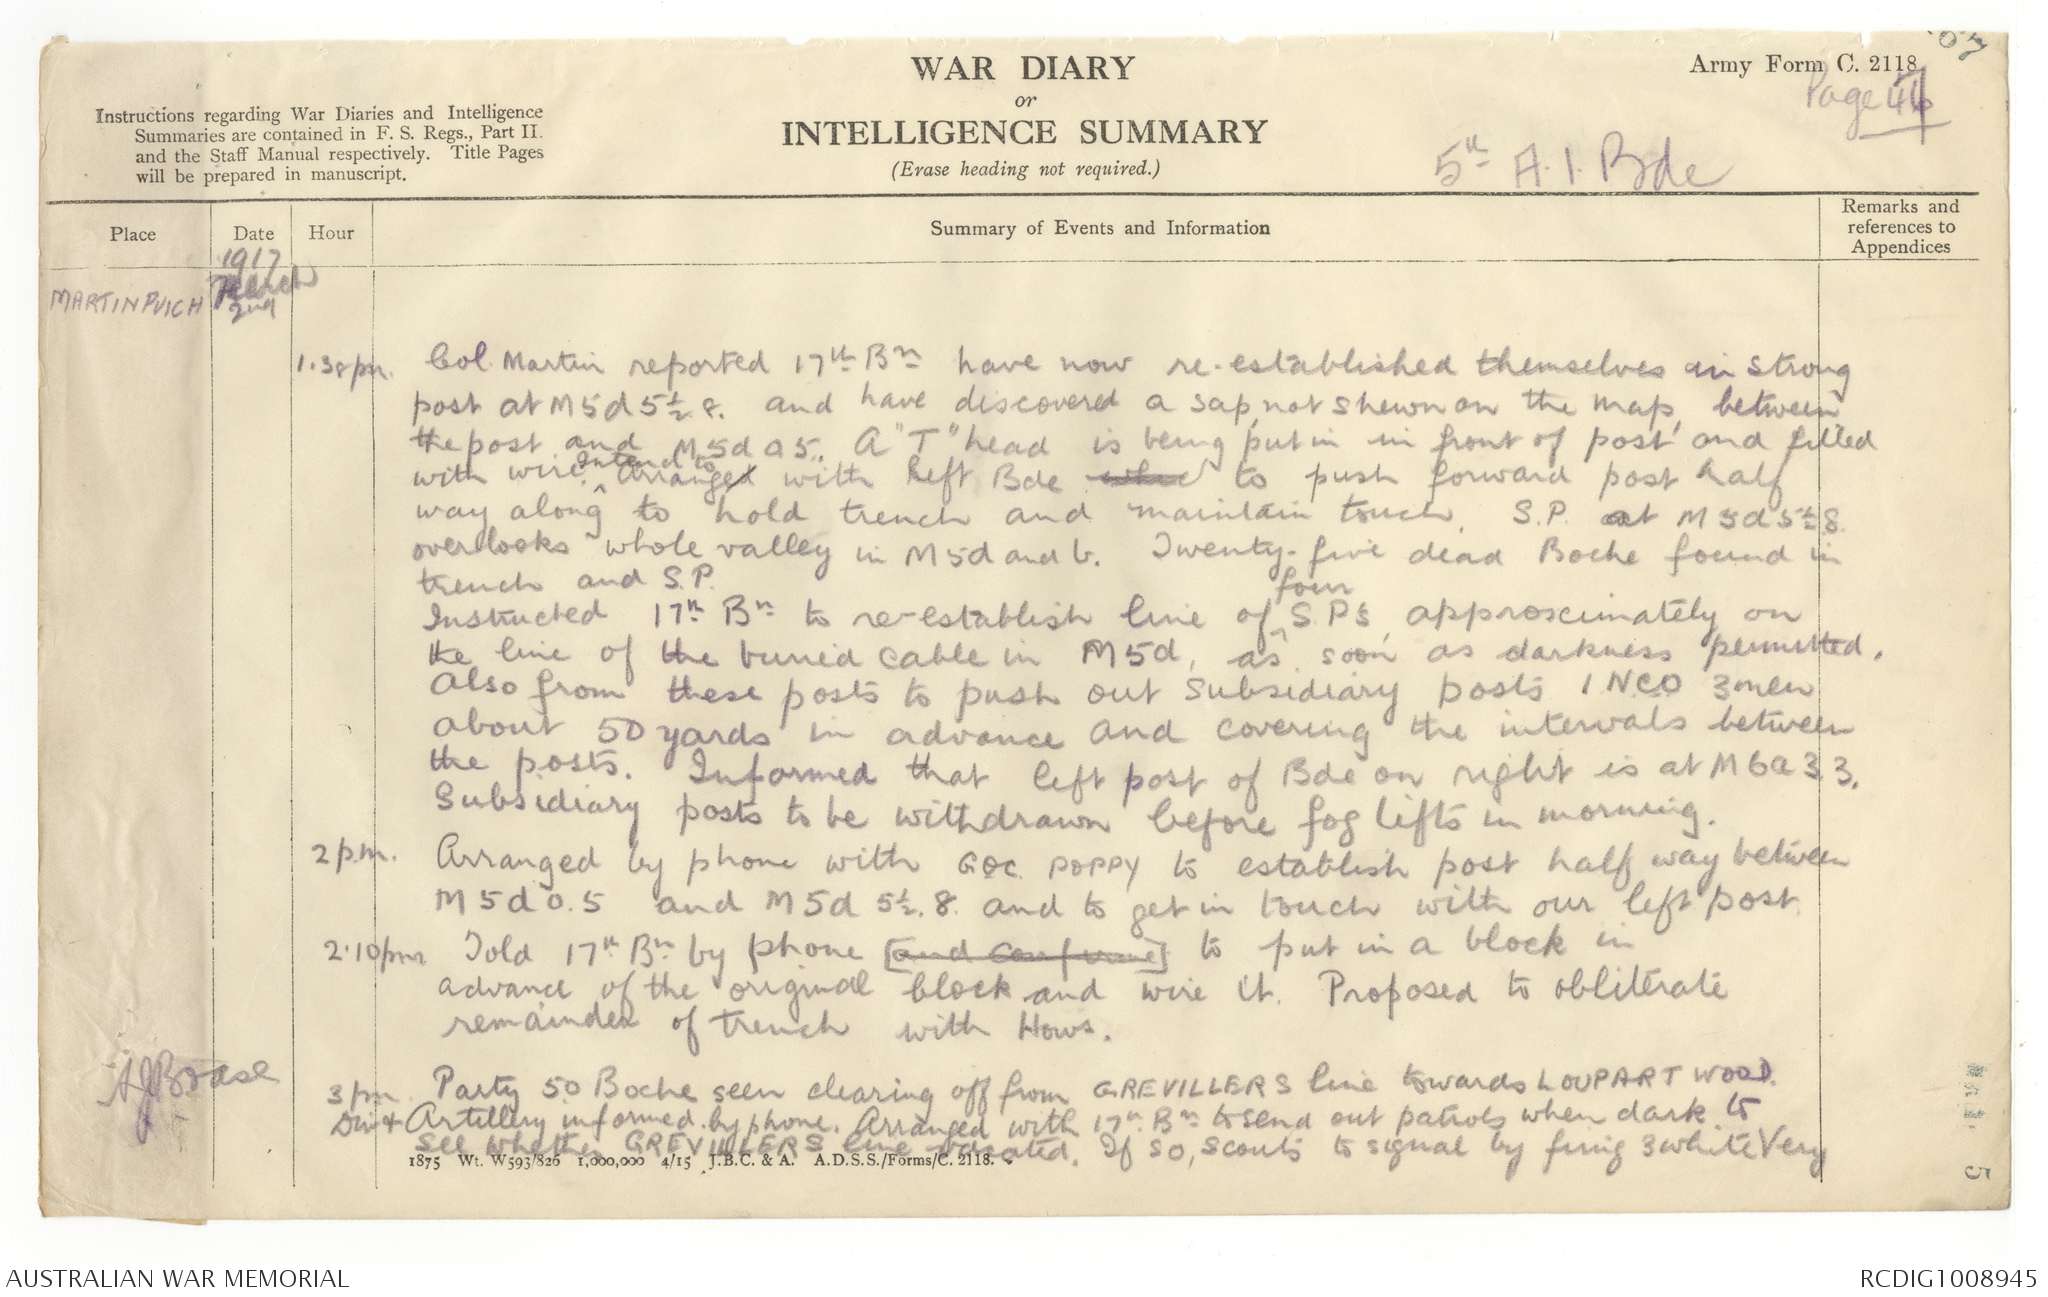 WAR DIARY
or
INTELLIGENCE SUMMARY
(Erase heading not required.)
Army Form C. 2118
Page
Instructions regarding War Diaries and Intelligence
Summaries are contained in F. S. Regs., Part II.
and the Staff Manual respectively. Title Pages
will be prepared in manuscript.
5th A. I. Bde
Place
Date
Hour
Summary of Events and Information
Remarks and
references to
Appendices
1917
MARTINPUICH March
2nd
1.38pm. Col. Martin reported 17th Bn have now re-established themselves in strong
post at M5d 5½ 8. and have discovered a sap, not shewn on the map, between
the post and M5d 0 5. A "T" head is being put in in front of post and filled
with wire. Intend to arrange with left Bde to push forward post half
way along to hold trench and maintain touch. S.P. at M5d 5½ 8.
overlooks whole valley in M5d and b. Twenty-five dead Boche found in
trench and S.P.
Instructed 17th Bn to re-establish line of four S.P.s, approximately on
the line of the buried cable in M5d, as soon as darkness permitted.
Also from these posts to push out subsidiary posts 1 NCO 3 men
about 50 yards in advance and covering the intervals between
the posts. Informed that left post of Bde on right is at M6a 3.3.
Subsidiary posts to be withdrawn before fog lifts in morning.
2 p.m. Arranged by phone with GOC POPPY to establish post half way between
M5d 0.5 and M5d 5½.8. and to get in touch with our left post.
2.10pm Told 17th Bn by phone [and confirmed] to put in a block in
advance of the original block and wire it. Proposed to obliterate
remainder of trench with Hows.
3 pm. Party 50 Boche seen clearing off from GREVILLERS line towards LOUPART WOOD.
Div & Artillery informed by phone. Arranged with 17th Bn to send out patrols when dark to
see whether GREVILLERS line vacated. If so, scouts to signal by firing 3 white Very
AJBoase
1875 Wt. W593/826 1,000,000 4/15 J.B.C. & A. A.D.S.S./Forms/C. 2118.
AUSTRALIAN WAR MEMORIAL
RCDIG1008945